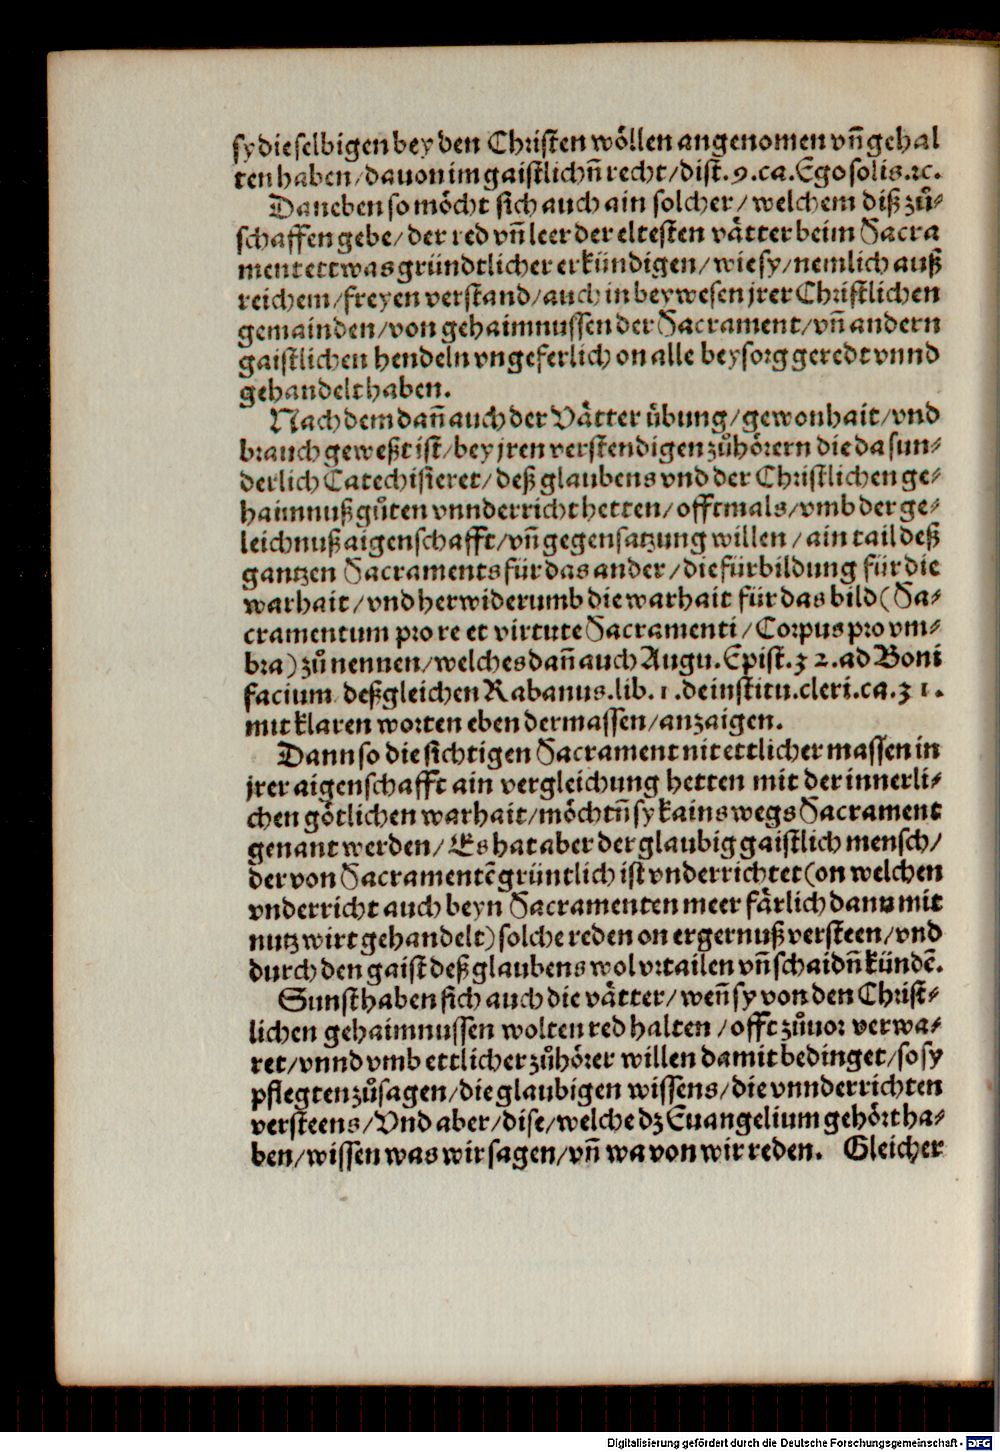 sy dieselbigen bey den Christen wöllen angenomen vn̄ gehal
ten haben/dauon im gaistlichn̄ recht/dist. 9. ca. Ego solis. ꝛc.
Daneben so möcht sich auch ain solcher/welchem diß zů-
schaffen gebe/der red vn̄ leer der eltesten vätter beim Sacra
ment ettwas gründtlicher erkündigen/wie sy/nemlich auß
reichem/freyen verstand/auch in beywesen jrer Christlichen
gemainden/von gehaimnussen der Sacrament/vn̄ andern
gaistlichen hendeln vngeferlich on alle beysorg geredt vnnd
gehandelt haben.
Nach dem dan̄ auch der Vätter übung/gewonhait/vnd
brauch geweßt ist/bey jren verstendigen zůhörern die da sun-
derlich Catechisieret/deß glaubens vnd der Christlichen ge-
haimnuß gůten vnnderricht hetten/offtmals/vmb der ge-
leichnuß aigenschafft/vn̄ gegensatzung willen/ain tail deß
gantzen Sacraments für das ander/die fürbildung für die
warhait/vnd herwiderumb die warhait für das bild (Sa-
cramentum pro re et virtute Sacramenti/Corpus pro vm-
bra) zů nennen/welches dan̄ auch Augu. Epist. 32. ad Boni
facium deßgleichen Rabanus. lib. 1. de institu. cleri. ca. 31.
mit klaren worten eben dermassen/anzaigen.
Dann so die sichtigen Sacrament nit ettlicher massen in
jrer aigenschafft ain vergleichung hetten mit der innerli-
chen götlichen warhait/möchtn̄ sy kains wegs Sacrament
genant werden/Es hat aber der glaubig gaistlich mensch/
der von Sacramentē gründlich ist vnderrichtet (on welchen
vnderricht auch beyn Sacramenten meer färlich dann mit
nutz wirt gehandelt) solche reden on ergernuß versteen/vnd
durch den gaist deß glaubens wol vrtailen vn̄ schaidn̄ kündē.
Sunst haben sich auch die vätter/wen̄ sy von den Christ-
lichen gehaimnussen wolten red halten/offt zůuor verwa-
ret/vnnd vmb ettlicher zůhörer willen damit bedinget/so sy
pflegten zůsagen/die glaubigen wissens/die vnnderrichten
versteens/Vnd aber/dise/welche dz Euangelium gehört ha-
ben/wissen was wir sagen/vn̄ wa von wir reden. Gleicher
Digitalisierung gefördert durch die Deutsche Forschungsgemeinschaft - DFG